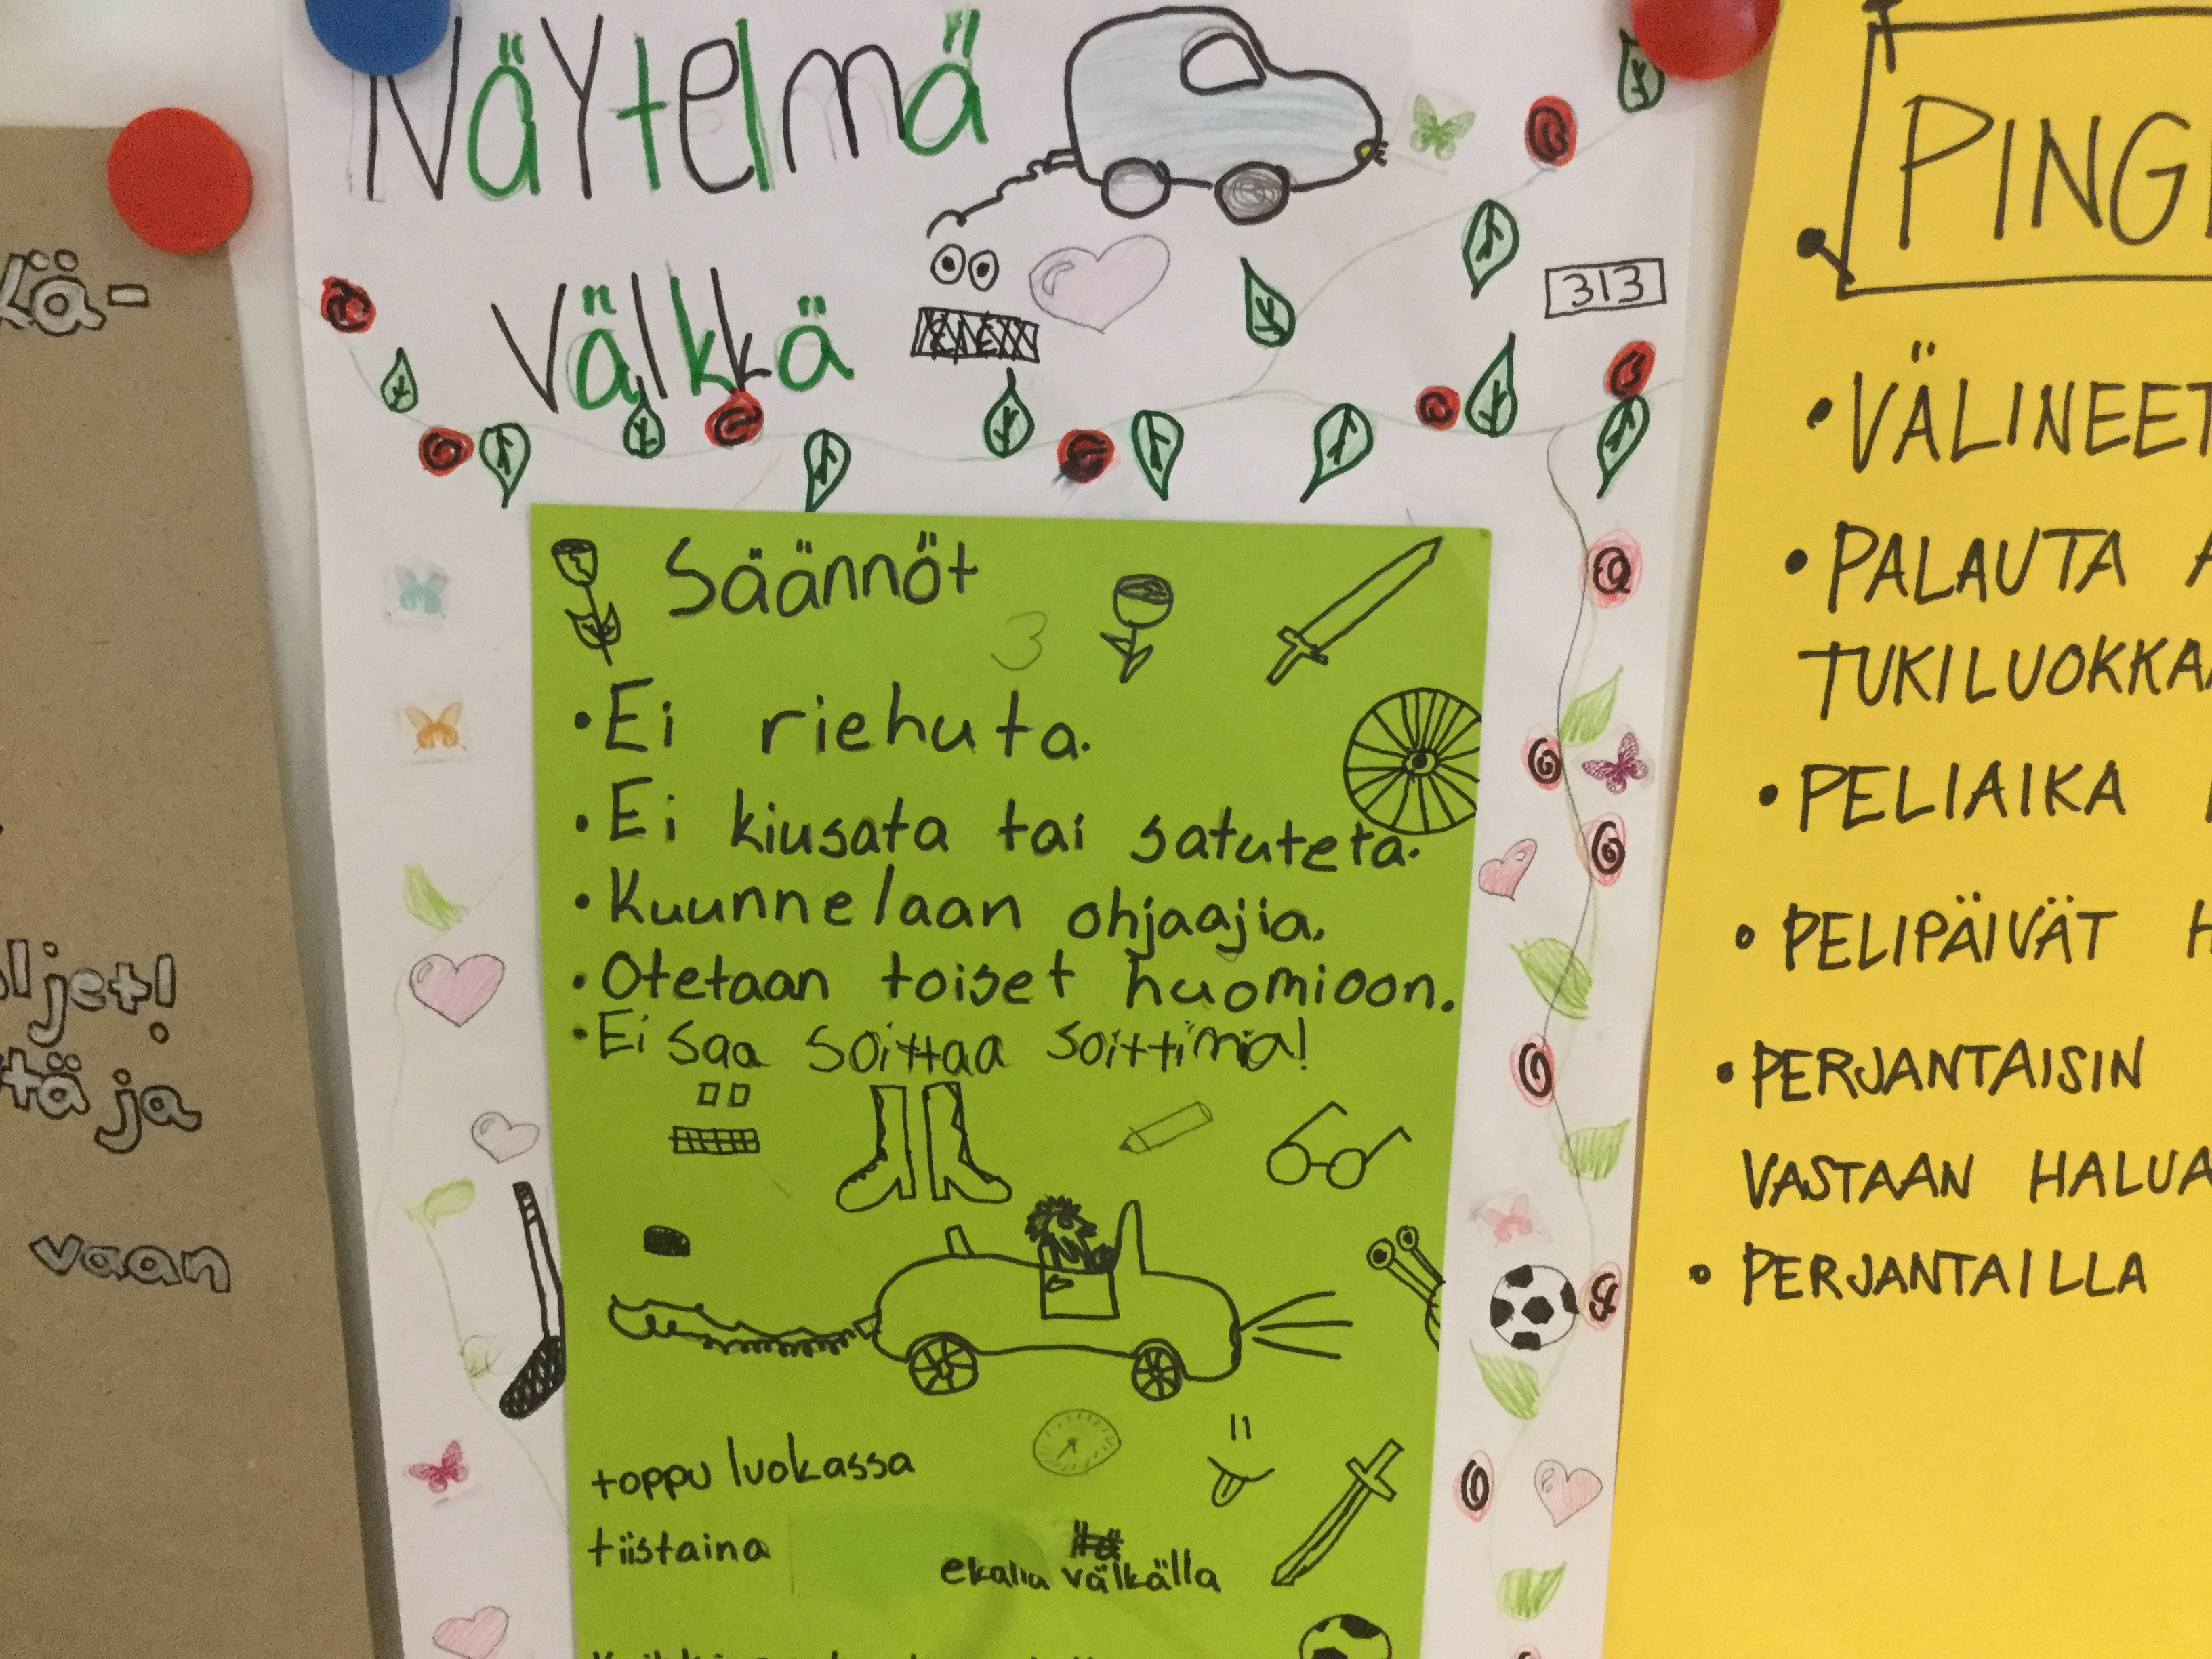 Näytelmä
Välkkä
313
Säännöt
3
• Ei riehuta.
• Ei kiusata tai satuteta.
• Kuunnelaan ohjaajia.
• Otetaan toiset huomioon.
• Ei saa soittaa soittimia!
toppu luokassa
tiistaina
ekalla välkälla
PING
• VÄLINEET
• PALAUTA
TUKILUOKKA
• PELIAIKA
• PELIPÄIVÄT
• PERJANTAISIN
VASTAAN HALUA
• PERJANTAILLA
kä-
ljet!
tä ja
vaan